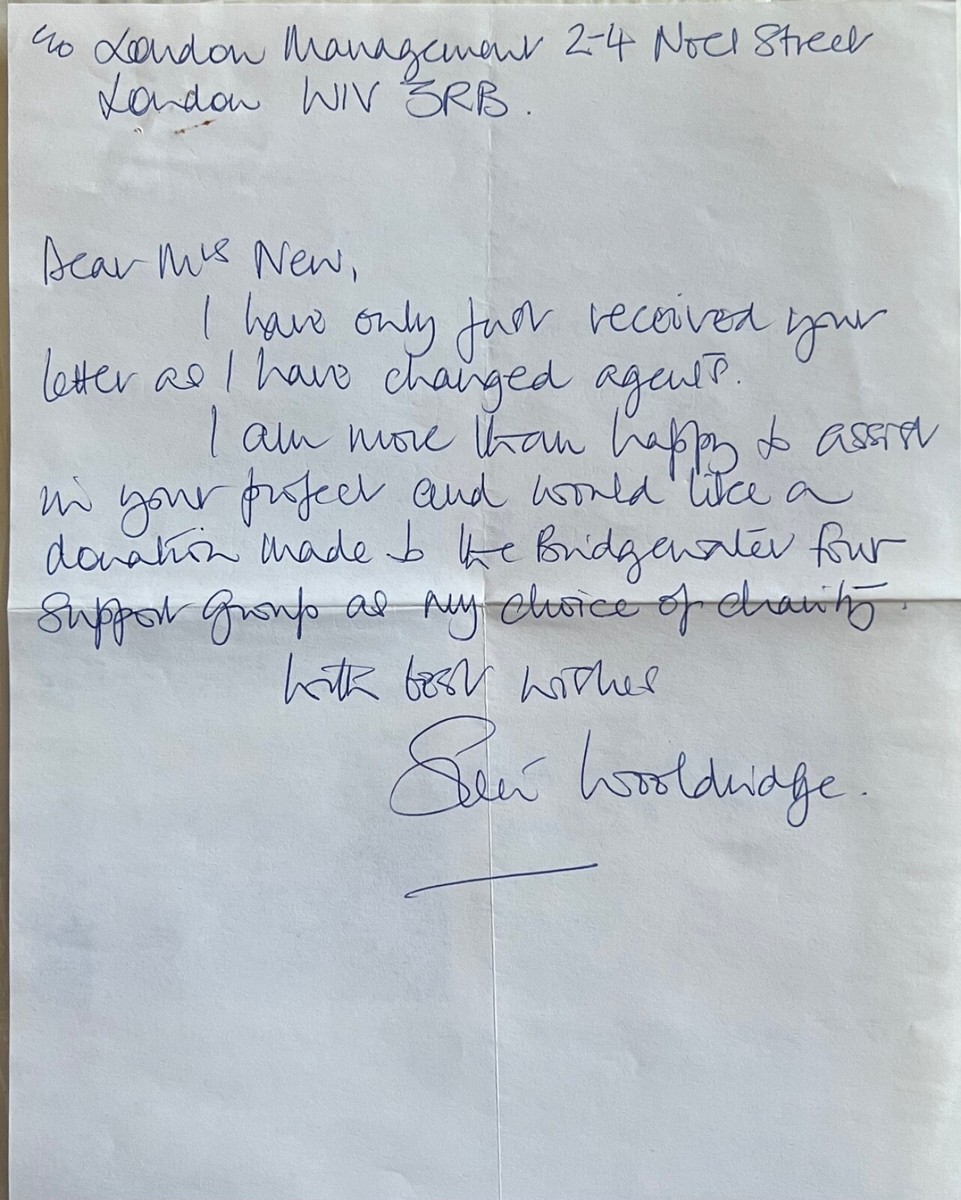 c/o London Management 2-4 Noel Street
London W1V 3RB.
Dear Mrs New,
I have only just received your
letter as I have changed agents.
I am more than happy to assist
in your project and would like a
donation made to the Bridgewater four
support group as my choice of charity.
With best wishes
Susan Wooldridge.